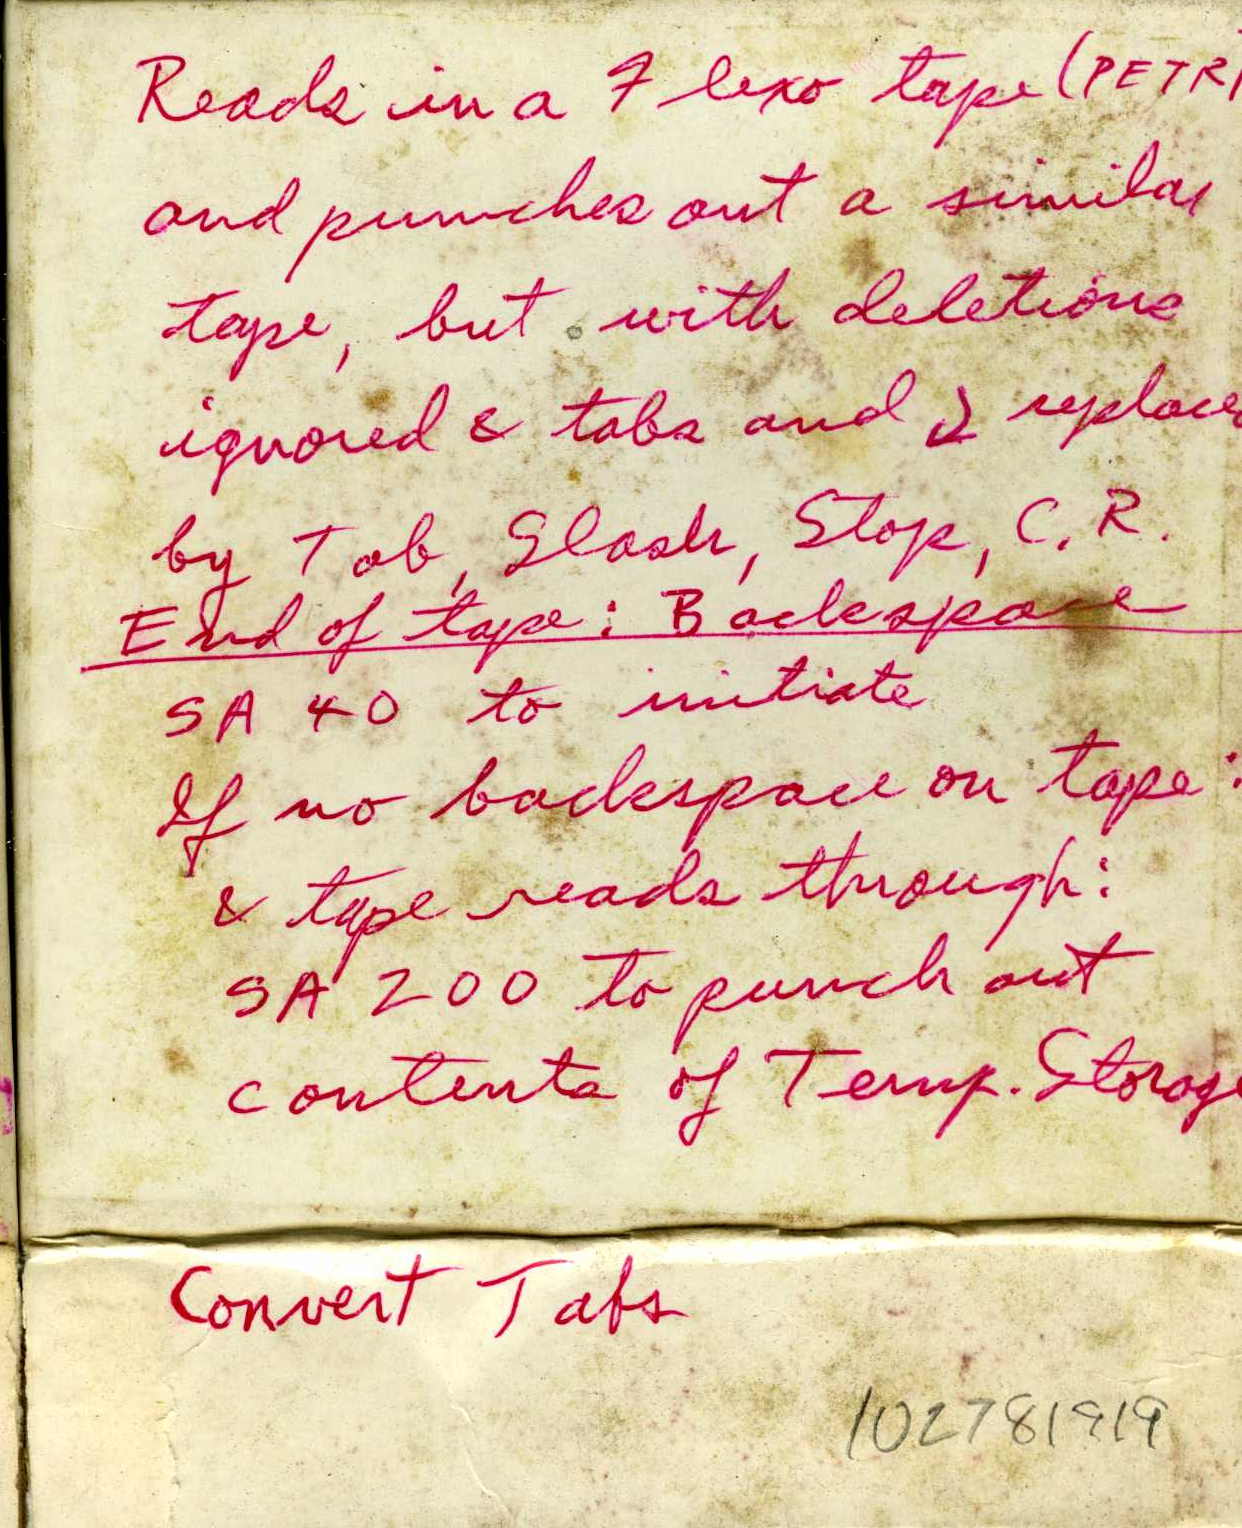 Reads in a Flexo tape (PETR)
and punches out a similar
tape, but with deletions
ignored & tabs and replaced
by Tab, Slash, Stop, C.R.
End of tape: Backspace
SA 40 to initiate
If no backspace on tape:
& tape reads through:
SA 200 to punch out
contents of Temp. Storage
Convert Tabs
102781919